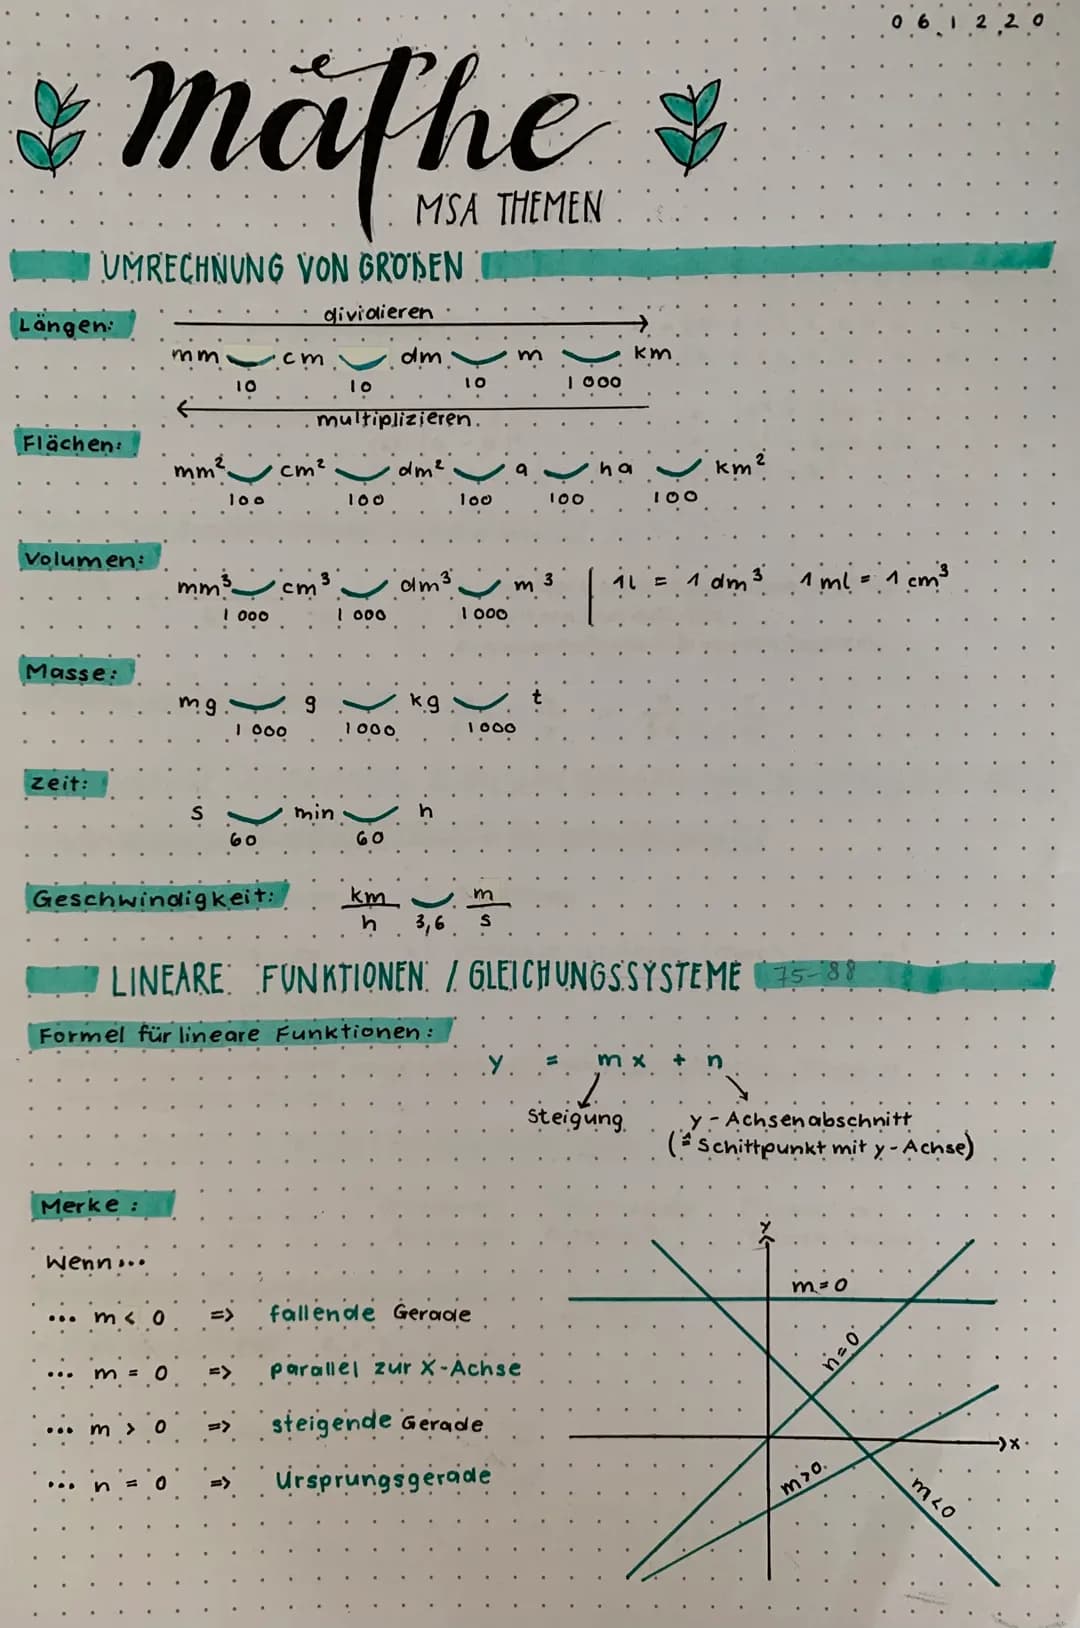 06.12.20
mathe
MSA THEMEN
UMRECHNUNG VON GRÖßEN
Längen:
dividieren
mm cm dm m km
10 10 10 1000
multiplizieren
Flächen:
mm² cm² dm² a ha km²
100 100 100 100 100
Volumen:
mm³ cm³ dm³ m³ | 1l = 1 dm³ 1 ml = 1 cm³
1000 1000 1000
Masse:
mg g kg t
1000 1000 1000
Zeit:
s min h
60 60
Geschwindigkeit: km/h 3,6 m/s
LINEARE FUNKTIONEN / GLEICHUNGSSYSTEME 75-88
Formel für lineare Funktionen:
y = mx + n
Steigung y-Achsenabschnitt
(≙ Schittpunkt mit y-Achse)
Merke:
Wenn...
... m < 0 => fallende Gerade
... m = 0 => parallel zur X-Achse
... m > 0 => steigende Gerade
... n = 0 => Ursprungsgerade
y
m=0
n=0
x
m>0
m<0